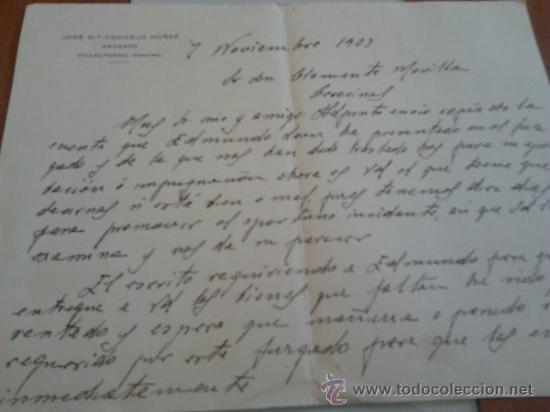 JOSE Mª CONCEJO NÚÑEZ
ABOGADO
VILLALPANDO (ZAMORA)
7 Noviembre 1903
Sr Don Clemente
Muy Sr mio y amigo: Adjunto envio copia de la
cuenta que Edmundo ha presentado en el juz
gado y de la que nos han dado traslado hoy para su apro
bación o impugnación ahora es Vd el que tiene que
decirnos si está bien o mal pues tenemos diez dias
para promover el oportuno incidente, asi que Vd la
examina y nos da su parecer
El escrito requiriendo a Edmundo para que
entregue a Vd los bienes que faltan ha sido
sentado y espero que mañana o pasado
requerido por este juzgado para que los en
inmediatamente
www.todocoleccion.net